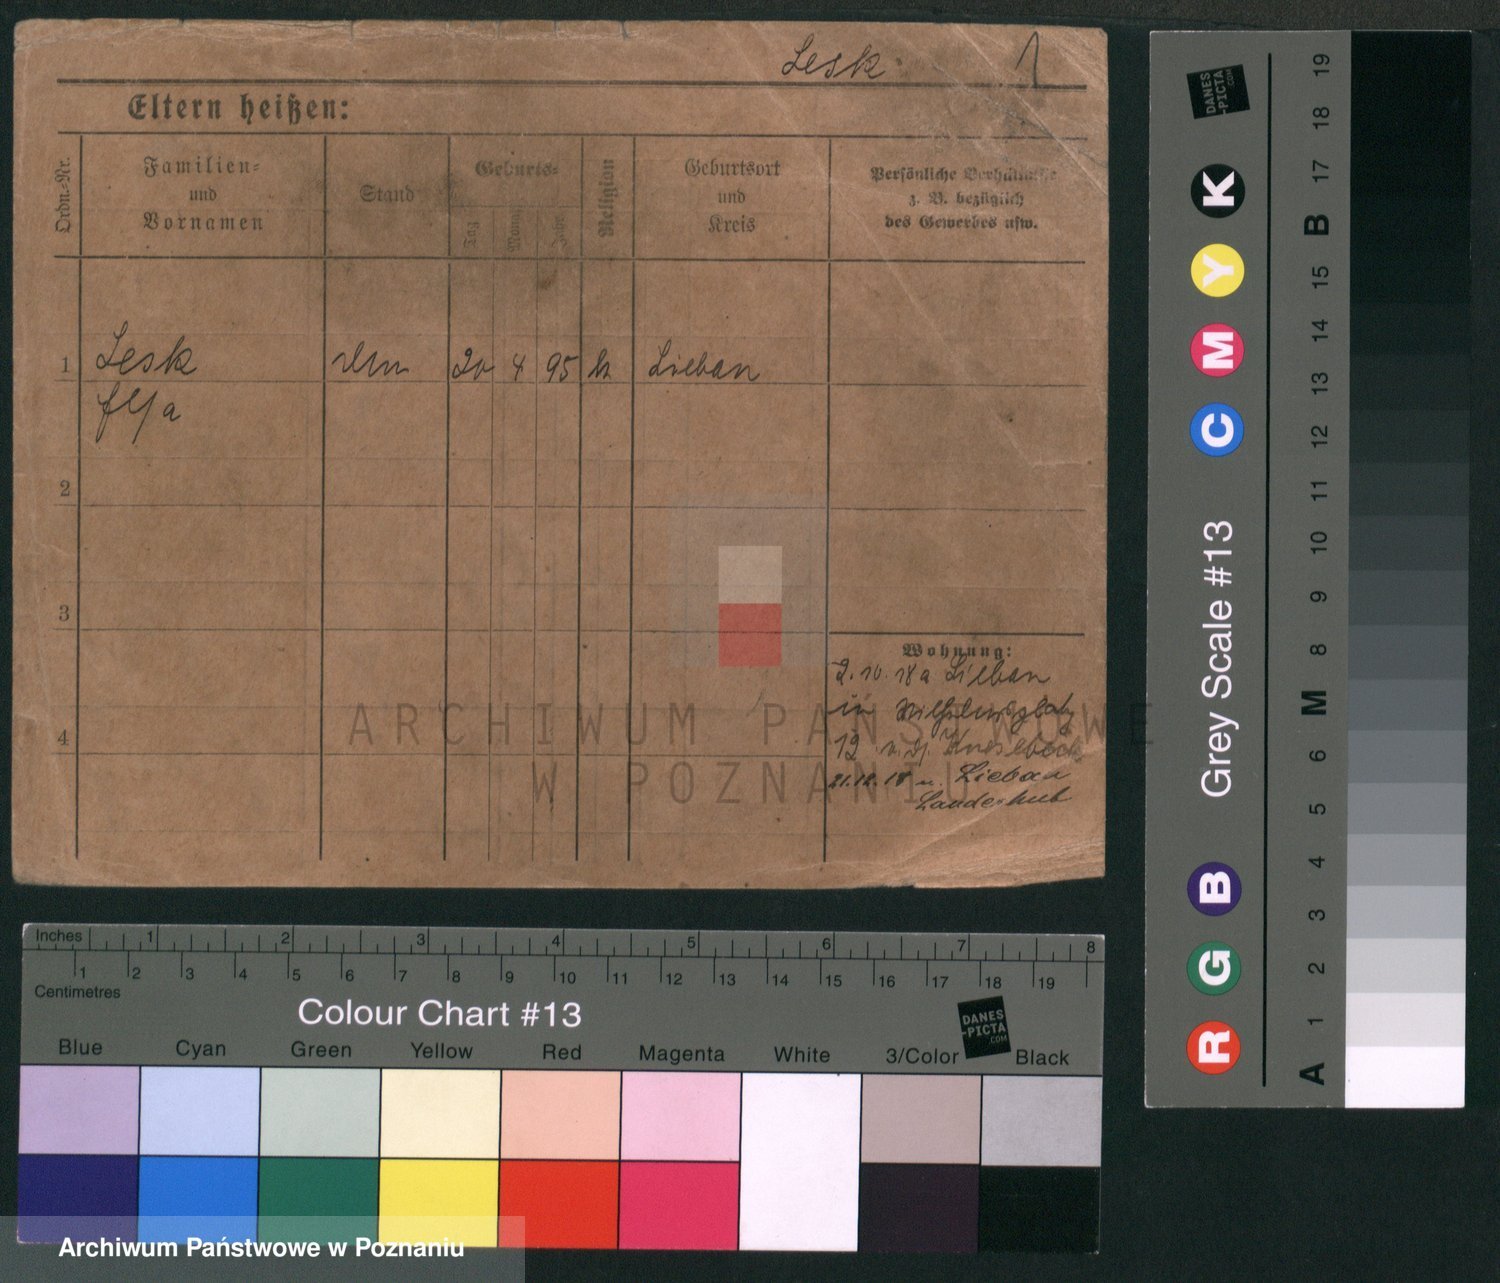 Lesk 1
Eltern heißen:
Ordn.-Nr.
Familien-
und
Vornamen
Stand
Geburts-
Tag
Monat
Jahr
Religion
Geburtsort
und
Kreis
Persönliche Verhältnisse
z. B. bezüglich
des Gewerbes usw.
1 Lesk 20 4 95 Liebau
2
3
4
Wohnung:
2.10.18 a Liebau
in
12 v. d. Knesebeck
21.12.18 n. Liebau
Landeshut
ARCHIWUM PAŃSTWOWE
W POZNANIU
Inches 1 2 3 4 5 6 7 8
1 2 3 4 5 6 7 8 9 10 11 12 13 14 15 16 17 18 19
Centimetres
Colour Chart #13
DANES
-PICTA
.COM
Blue Cyan Green Yellow Red Magenta White 3/Color Black
Archiwum Państwowe w Poznaniu
DANES
-PICTA
.COM
R G B Grey Scale #13 C M Y K
A 1 2 3 4 5 6 M 8 9 10 11 12 13 14 15 B 17 18 19